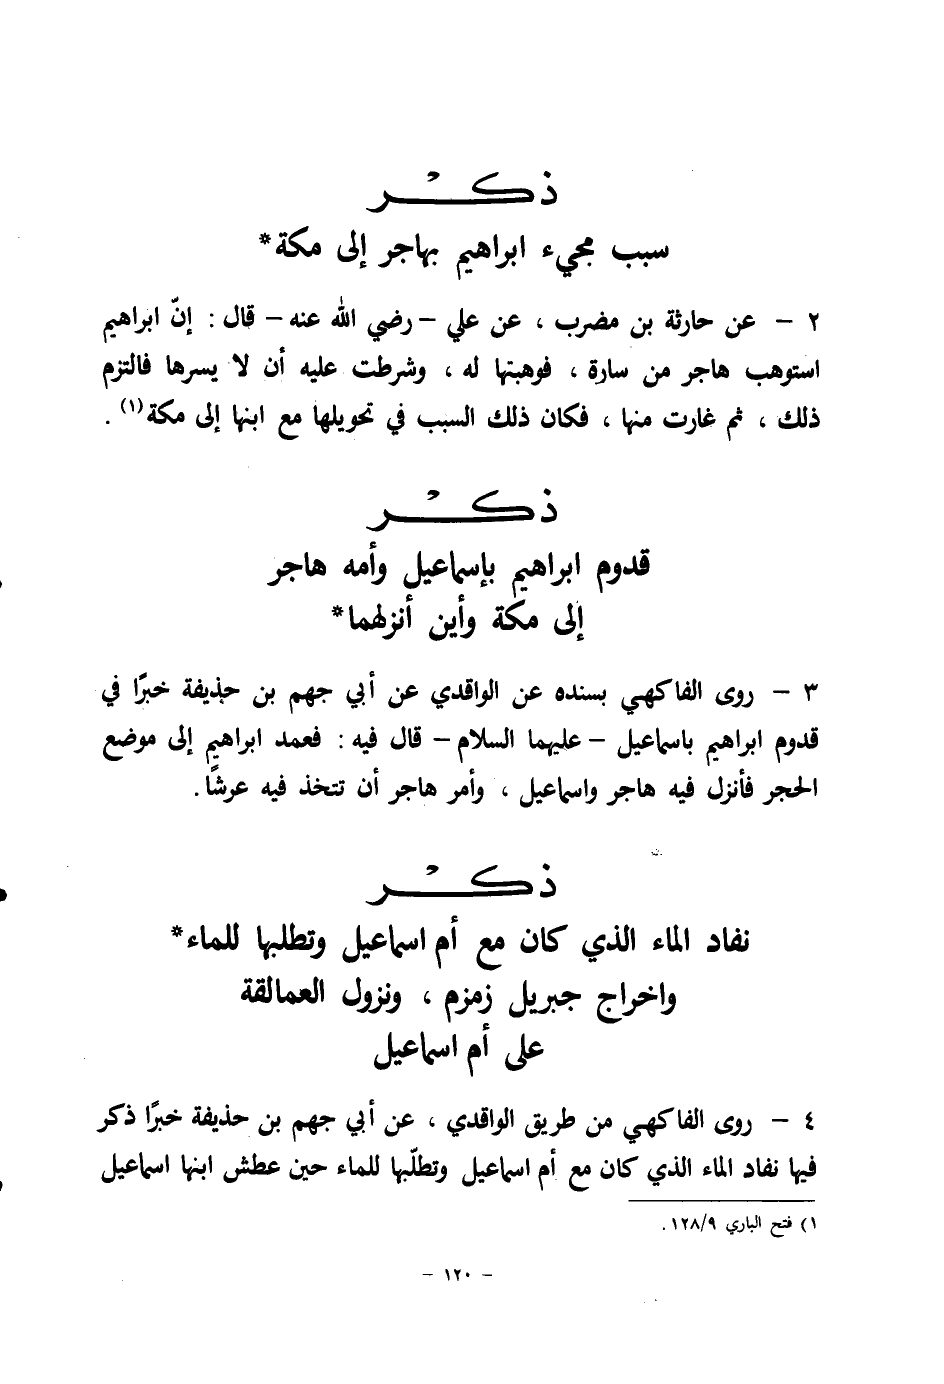 ذكر
سبب مجيء ابراهيم بهاجر إلى مكة*
٢ - عن حارثة بن مضرب ، عن علي - رضي الله عنه - قال : إنّ ابراهيم
استوهب هاجر من سارة ، فوهبتها له ، وشرطت عليه أن لا يسرها فالتزم
ذلك ، ثم غارت منها ، فكان ذلك السبب في تحويلها مع ابنها إلى مكة(١) .
ذكر
قدوم ابراهيم بإسماعيل وأمه هاجر
إلى مكة وأين أنزلهما*
٣ - روى الفاكهي بسنده عن الواقدي عن أبي جهم بن حذيفة خبرًا في
قدوم ابراهيم باسماعيل - عليهما السلام - قال فيه : فعمد ابراهيم إلى موضع
الحجر فأنزل فيه هاجر واسماعيل ، وأمر هاجر أن تتخذ فيه عرشًا .
ذكر
نفاد الماء الذي كان مع أم اسماعيل وتطلبها للماء*
واخراج جبريل زمزم ، ونزول العمالقة
على أم اسماعيل
٤ - روى الفاكهي من طريق الواقدي ، عن أبي جهم بن حذيفة خبرًا ذكر
فيها نفاد الماء الذي كان مع أم اسماعيل وتطلّبها للماء حين عطش ابنها اسماعيل
١) فتح الباري ١٢٨/٩ .
- ١٢٠ -